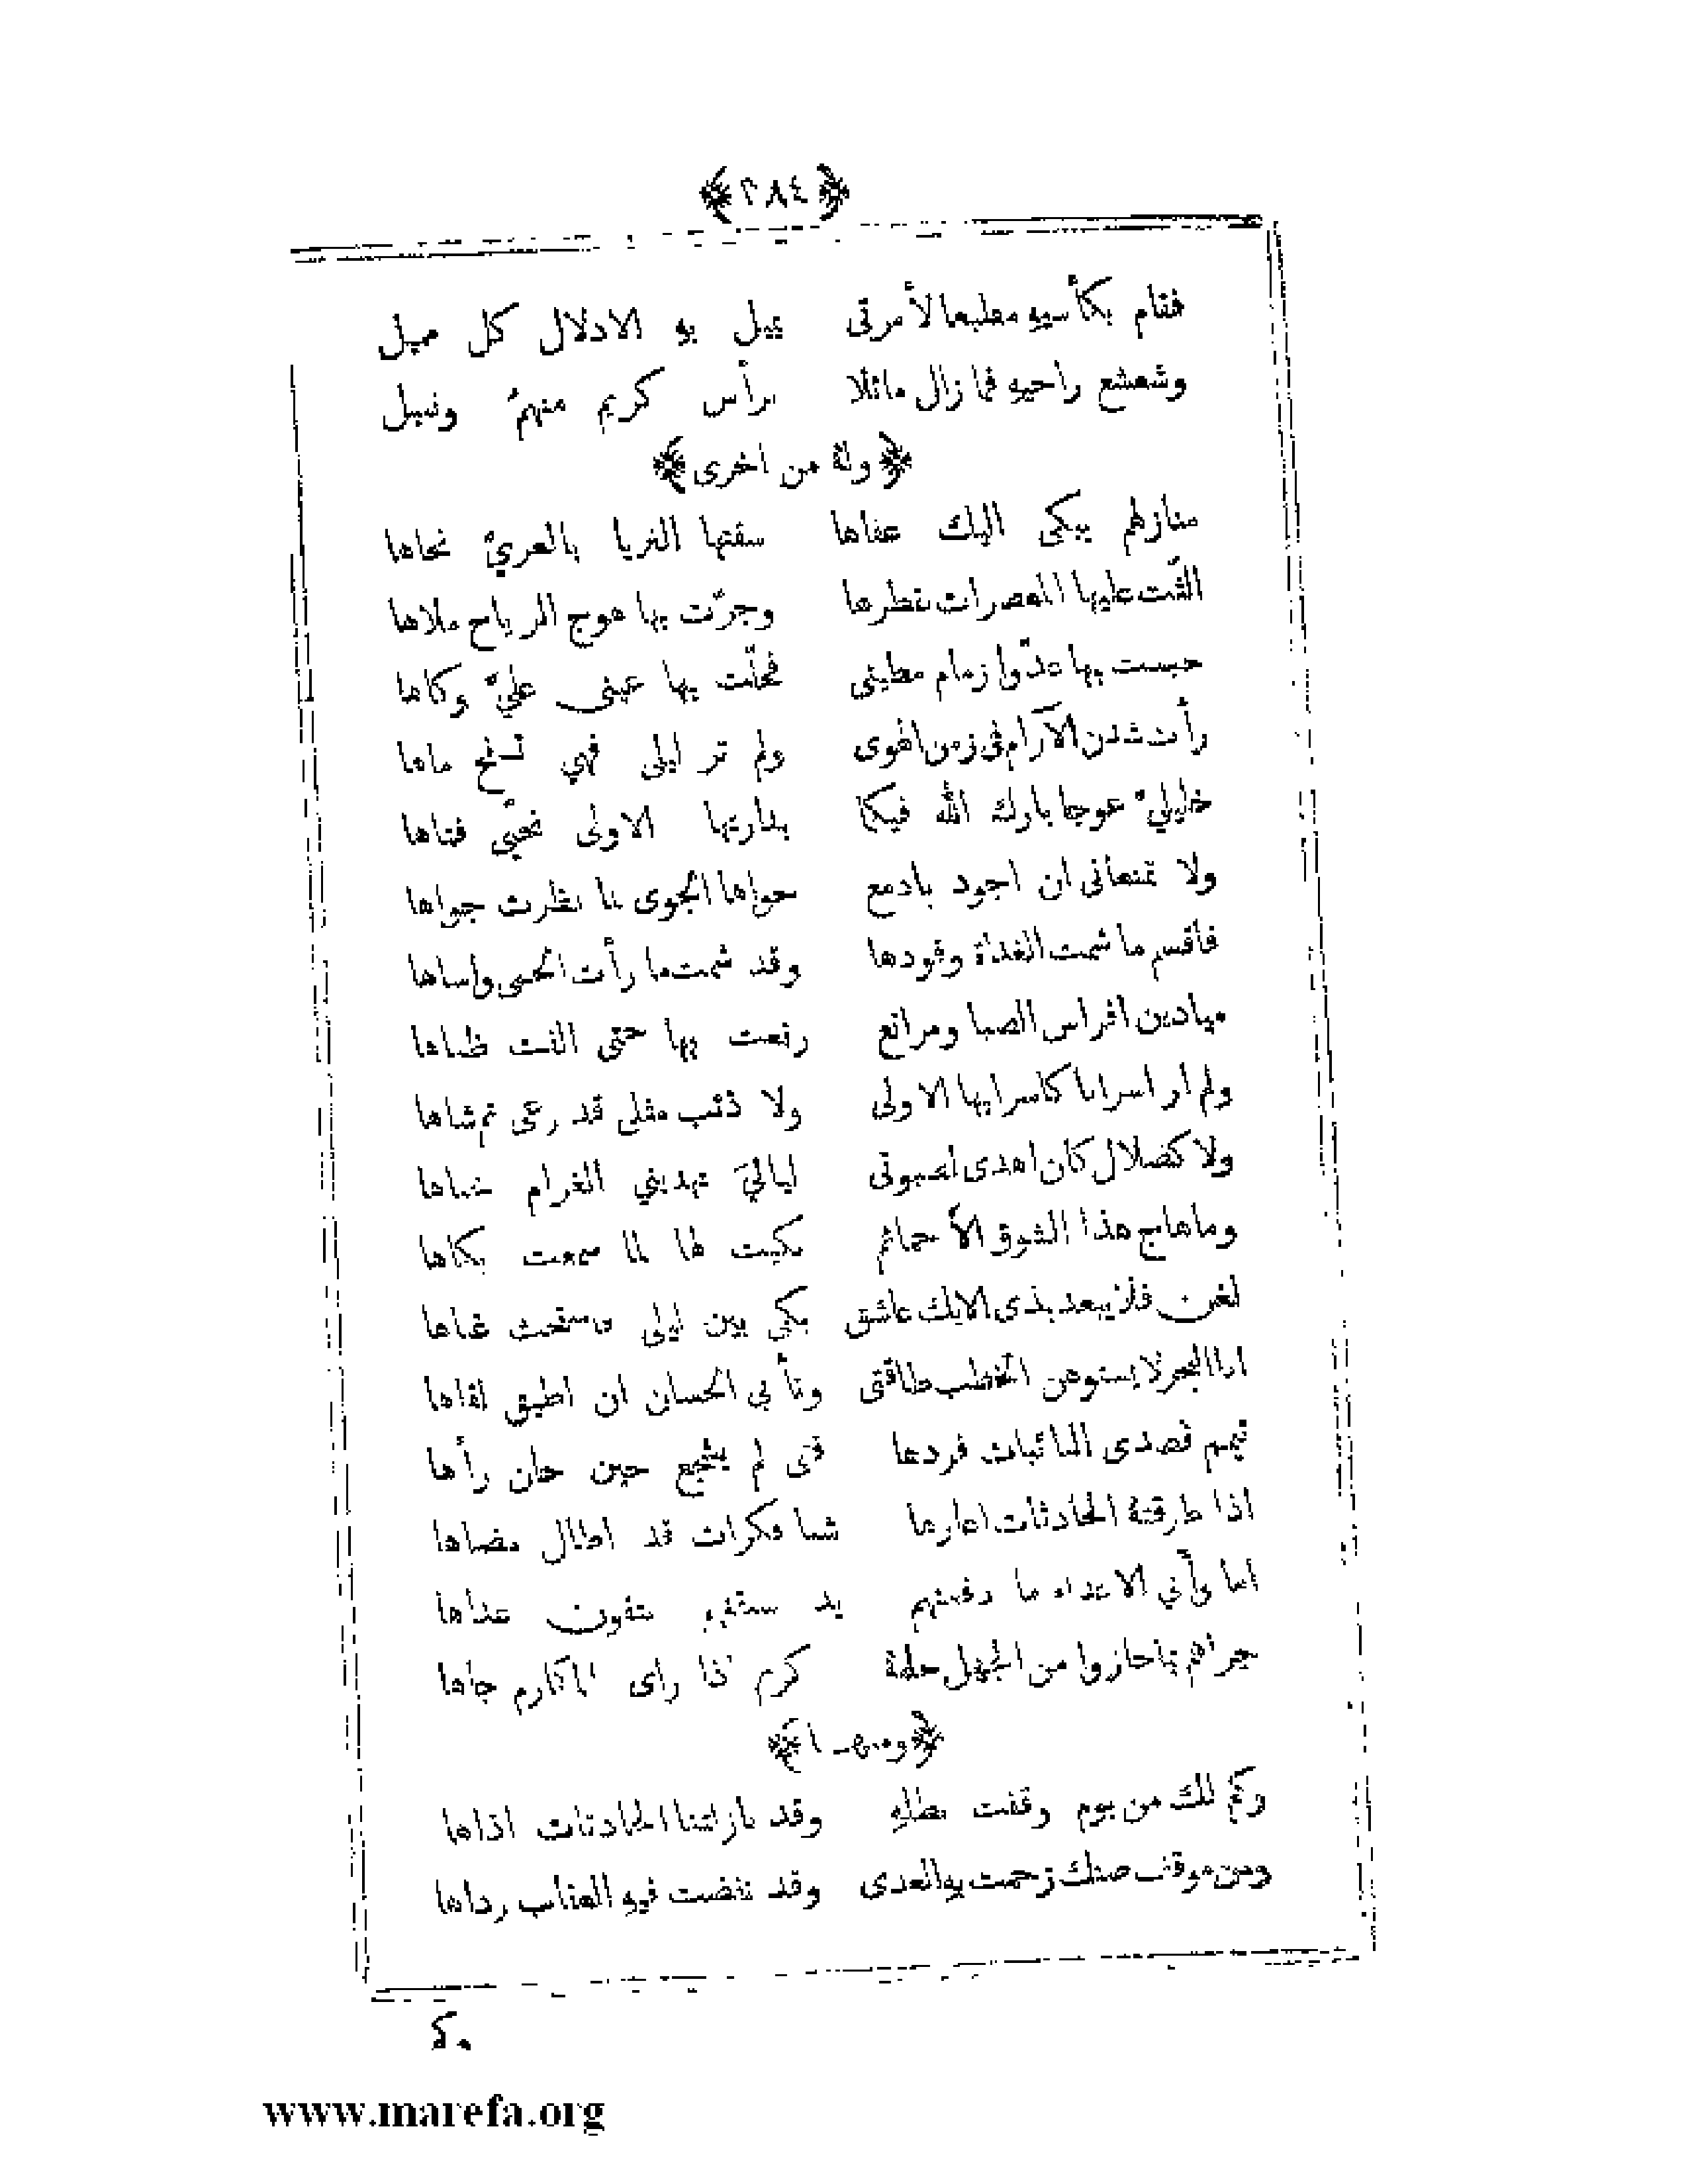 ﴿٢٨٤﴾
فقام بكأسيه مطيعا لأمرتى يميل به الادلال كل مميل
وشعشع راحيه فما زال مائلا برأس كريم منهم ونبيل
﴿وله من اخرى﴾
منازلهم يبكى اليك عفاها سقتها الثريا بالعريّ نحاها
الثّت عليها المعصرات بقطرها وجرّت بها هوج الرياح ملاها
حبست بها عدوا زمام مطيتى فحلّت بها عينى عليّ وكاها
رأت شدن الآرام فى زمن الهوى ولم تر ليلى فهي تسفح ماها
خليليّ عوجا بارك الله فيكما بدارتها الاولى نحيّي فناها
ولا تمنعانى ان اجود بادمع حواها الجوى لما نظرت جواها
فاقسم ما شمت الغداة وقودها وقد شمت ما رأت الحسى واساها
ميادين افراس الصبا ومراتع رتعت بها حتى الفت ظباها
ولم ار اسرابا كاسرابها الاولى ولا ذئب مثلى قد رعى ثم شاها
ولا كضلال كان اهدى لصبوتى لياليَ تهديني الغرام
وما هاج هذا الشوق الاّ حمائم بكيت لها لما سمعت بكاها
لغبن فلا يبعد بذى الايك عاشق بكى بين ليلى
البحر لا يستوهن الخطب طاقتى وتأبى الحسان ان اطيق لقاها
تيمم قصدى النائبات فردها فتى لم يشجع حين حان رأها
اذا طرقته الحادثات اعارها شبا فكرات قد اطال مضاها
اما وأبي الاعداء ما دفعتهم يد
جزاهم بما حازوا من الجهل حلمه كريم اذا رأى المكارم جاها
﴿ومنهــا﴾
وكم لك من يوم وقفت بظله وقد نازلتنا الحادثات اذاها
ومن موقف ضنك زحمت به العدى وقد نفضت فيه العقاب رداها
www.marefa.org